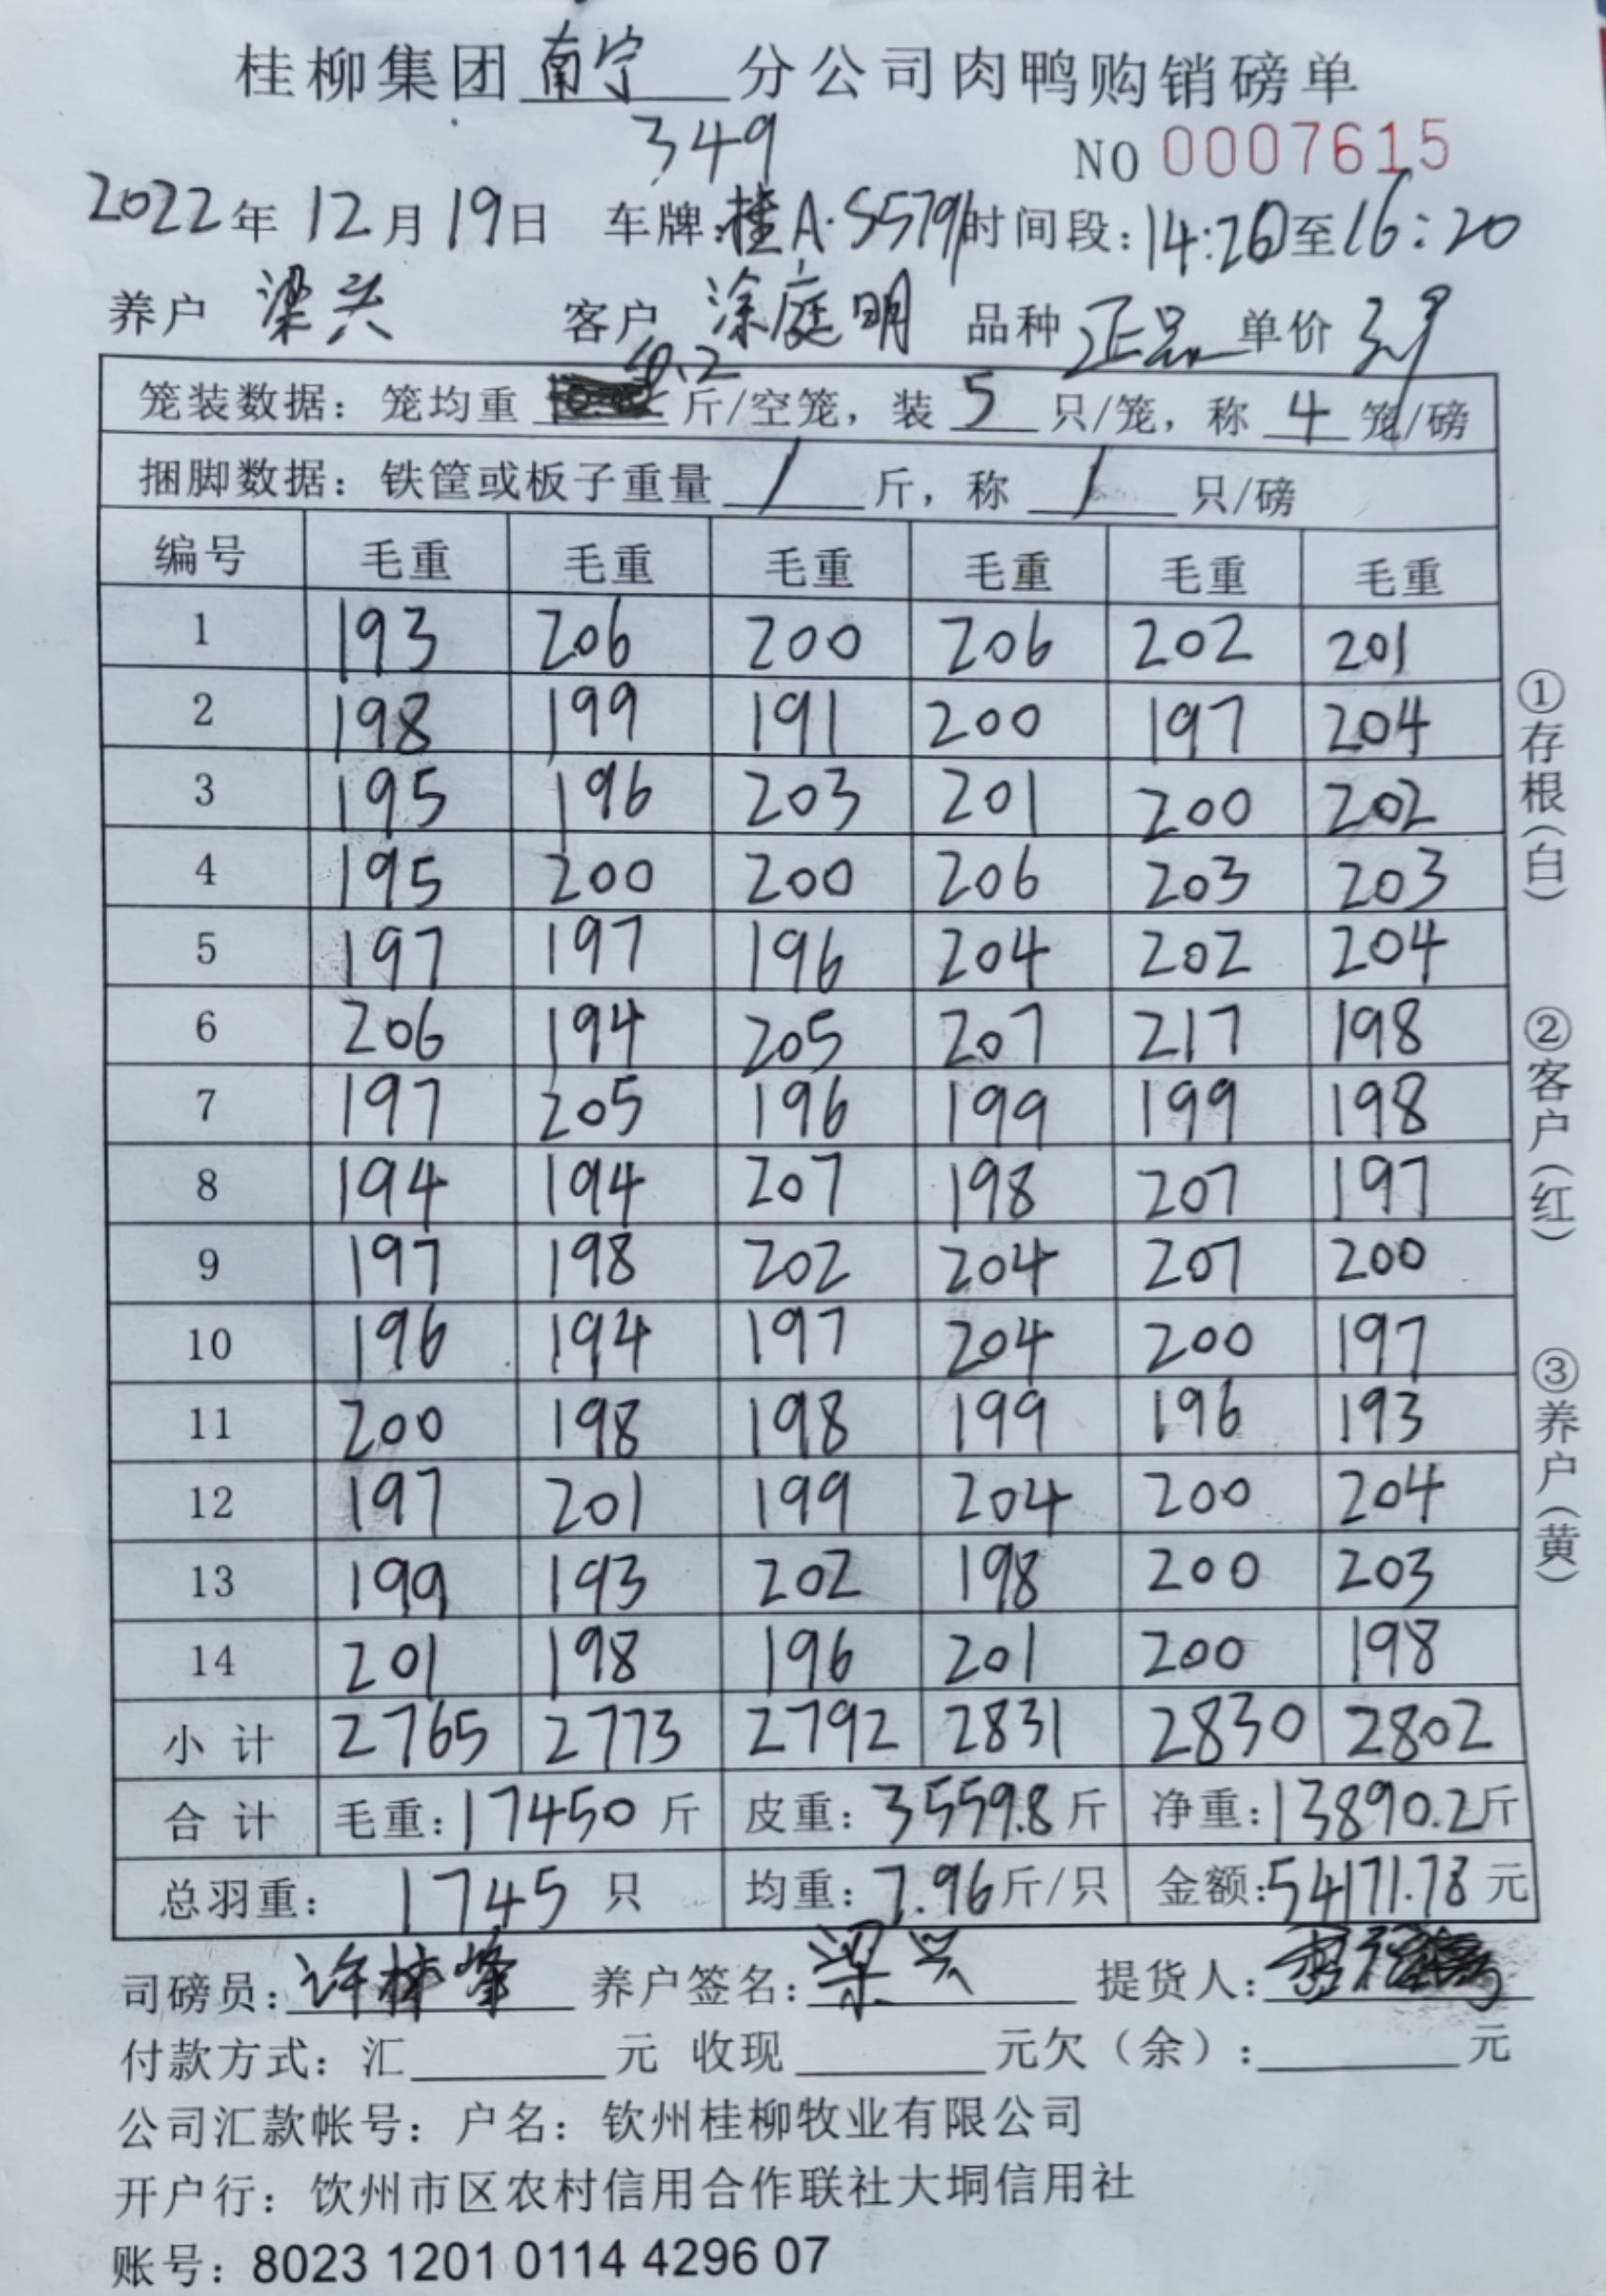 桂柳集团南宁分公司肉鸭购销磅单
349
NO 0007615
2022年12月19日 车牌:桂A·S5791 时间段:14:20至16:20
养户 梁兴 客户 涂庭明 品种 正品 单价 3.9
笼装数据:笼均重 10.2 斤/空笼,装 5 只/笼,称 4 笼/磅
捆脚数据:铁筐或板子重量 / 斤,称 / 只/磅
编号 毛重 毛重 毛重 毛重 毛重 毛重
1 193 206 200 206 202 201
2 198 199 191 200 197 204
3 195 196 203 201 200 202
4 195 200 200 206 203 203
5 197 197 196 204 202 204
6 206 194 205 207 217 198
7 197 205 196 199 199 198
8 194 194 207 198 207 197
9 197 198 202 204 207 200
10 196 194 197 204 200 197
11 200 198 198 199 196 193
12 197 201 199 204 200 204
13 199 193 202 198 200 203
14 201 198 196 201 200 198
小计 2765 2773 2792 2831 2830 2802
合计 毛重:17450斤 皮重:3559.8斤 净重:13890.2斤
总羽重: 1745 只 均重:7.96斤/只 金额:54171.78元
司磅员:许林峰 养户签名:梁兴 提货人:
付款方式:汇 元 收现 元欠(余): 元
公司汇款帐号:户名:钦州桂柳牧业有限公司
开户行:饮州市区农村信用合作联社大垌信用社
账号:8023 1201 0114 4296 07
①存根(白)
②客户(红)
③养户(黄)